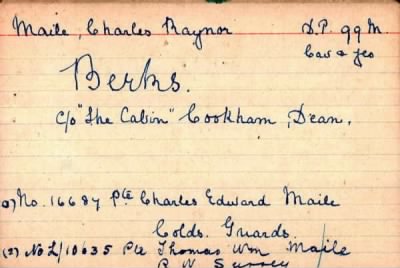 Maile, Charles Raynor D.P. 99 M.
Cav & Yeo
Berks.
c/o "The Cabin" Cookham, Dean,
(1) No. 16687 Pte Charles Edward Maile
Colds. Guards.
(2) No L/10635 Pte Thomas Wm Maile
R. W. Surrey